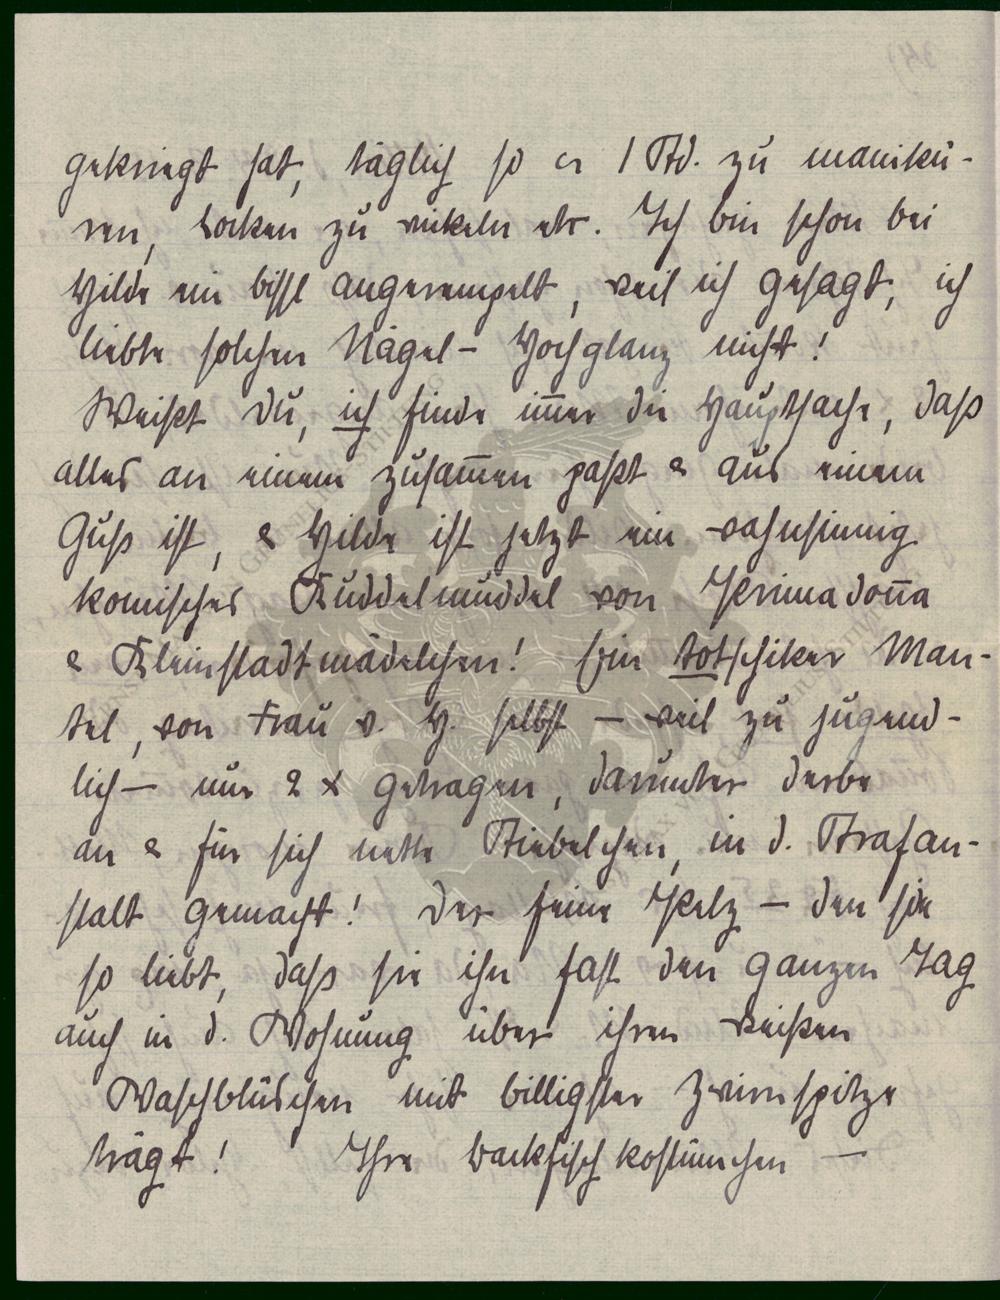 gekriegt hat, täglich so ca 1 Std. zu manikü-
ren, Locken zu wickeln etc. Ich bin schon bei
Hilde ein bissl angerempelt, weil ich gesagt, ich
liebte solchen Nägel-Hochglanz nicht!
Weißt Du, ich finde im̅er die Hauptsache, daß
alles an einem zusam̅en paßt & aus einem
Guß ist, & Hilde ist jetzt ein wahnsinnig
komisches Kuddelmuddel von Primadon̅a
& Kleinstadtmädelchen! Ein totschiker Man-
tel, von Frau v. H. selbst – weil zu jugend-
lich – nur 2 x getragen, darunter derbe
an & für sich nette Stiebelchen, in d. Strafan-
stalt gemacht! Der feine Pelz – den sie
so liebt, daß sie ihn fast den ganzen Tag
auch in d. Wohnung über ihren weißen
Waschblüschen mit billigster Zwirnspitze
trägt! Ihre Backfischkostümchen –